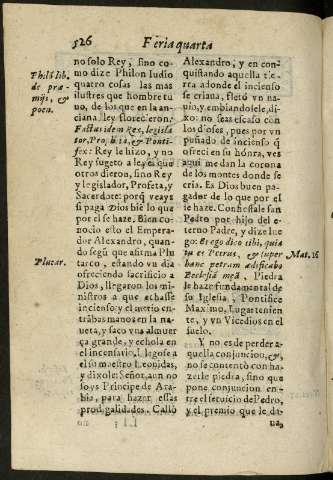 526
Feria quarta
no solo Rey, sino co-
mo dize Philon Iudio
quatro cosas las mas
ilustres que hombre tu-
uo, de los que en la an-
ciana ley florecieron:
Factus idem Rex, legisla
tor, Propheta, & Ponti-
fex: Rey le hizo, y no
Rey sugeto a leyes que
otros dieron, sino Rey
y legislador, Profeta, y
Sacerdote: porq̃ veays
si paga Dios biẽ lo que
por el se haze. Bien co-
nocio esto el Empera-
dor Alexandro, quan-
do segũ que afirma Plu
tarco, estando vn dia
ofreciendo sacrificio a
Dios, llegaron los mi-
nistros a que echasse
incienso: y el metio en-
trãbas manos en la na-
ueta, y faco vna almuer
ça grande, y echola en
el incensario. Llegose a
el su maestro Leonidas,
y dixole: Señor, aun no
soys Principe de Ara-
bia, para hazer essas
prodigalidades. Callò
Philõ lib.
de præ-
mijs, &
poen.
Plutar.
Alexandro, y en con-
quistando aquella tie-
rra adonde el incienso
se criaua, fletò vn na-
uio, y embiandosele, di-
xo: no seas escaso con
los dioses, pues por vn
puñado de incienso q̃
ofreci en su hõnra, ves
aqui me dan la corona
de los montes donde se
cria. Es Dios buen pa-
gador de lo que por el
se haze. Confiessale san
Pedro por hijo del e-
terno Padre, y dize lue-
go: Et ego dico tibi, quia
tu es Petrus, & super
hanc petram ædificabo
Ecclesiã meã. Piedra
le haze fundamental de
su Iglesia, Pontifice
Maximo, Lugartenien
te, y vn Vicedios en el
suelo.
Y no es de perder a-
quella conjuncion, &,
no se contentò con ha-
zerle piedra, sino que
pone conjuncion en-
tre el seruicio de Pedro,
y el premio que le da-
Mat. 16
Ll
ua,